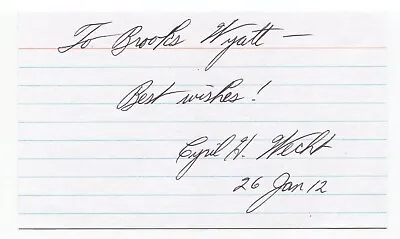 To Brooks Wyatt —
Best wishes!
Cyril H. Wecht
26 Jan 12